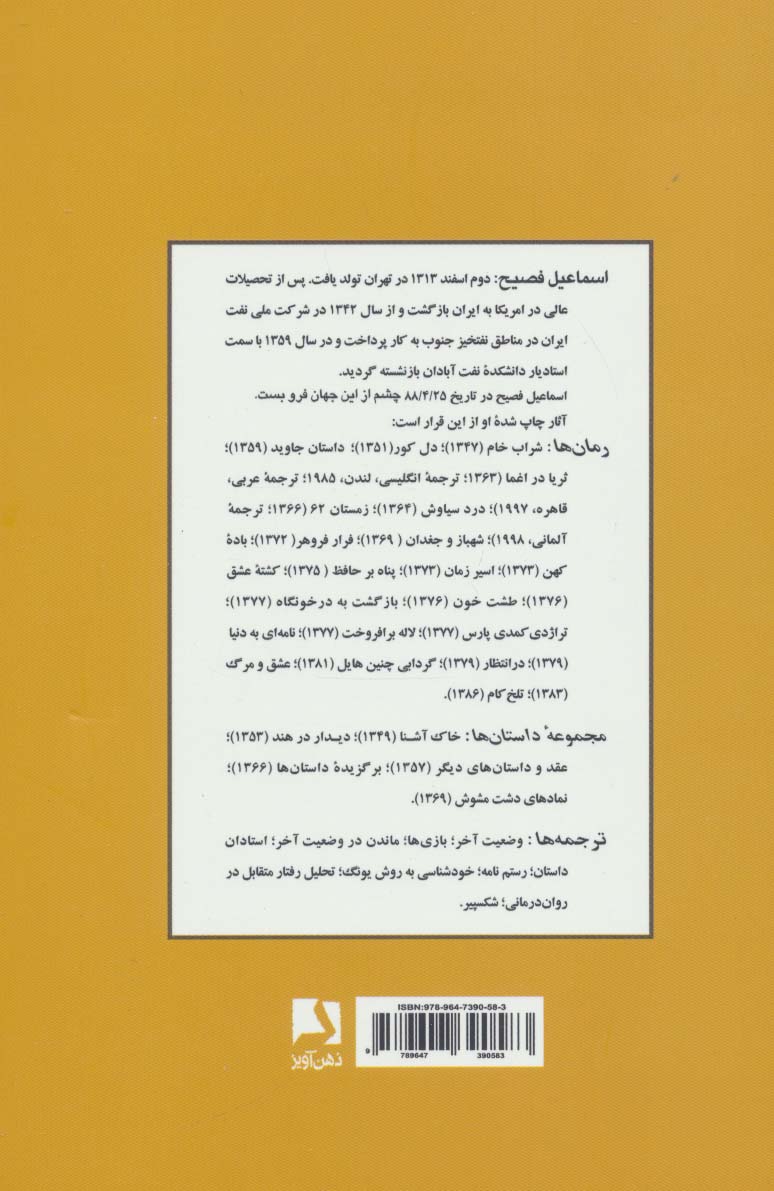 اسماعیل فصیح: دوم اسفند ۱۳۱۳ در تهران تولد یافت. پس از تحصیلات
عالی در امریکا به ایران بازگشت و از سال ۱۳۴۲ در شرکت ملی نفت
ایران در مناطق نفتخیز جنوب به کار پرداخت و در سال ۱۳۵۹ با سمت
استادیار دانشکدهٔ نفت آبادان بازنشسته گردید.
اسماعیل فصیح در تاریخ ۸۸/۴/۲۵ چشم از این جهان فرو بست.
آثار چاپ شدهٔ او از این قرار است:
رمان‌ها: شراب خام (۱۳۴۷)؛ دل کور(۱۳۵۱)؛ داستان جاوید (۱۳۵۹)؛
ثریا در اغما (۱۳۶۳؛ ترجمهٔ انگلیسی، لندن، ۱۹۸۵؛ ترجمهٔ عربی،
قاهره، ۱۹۹۷)؛ درد سیاوش (۱۳۶۴)؛ زمستان ۶۲ (۱۳۶۶؛ ترجمهٔ
آلمانی، ۱۹۹۸)؛ شهباز و جغدان ( ۱۳۶۹)؛ فرار فروهر( ۱۳۷۲)؛ بادهٔ
کهن (۱۳۷۳)؛ اسیر زمان (۱۳۷۳)؛ پناه بر حافظ ( ۱۳۷۵)؛ کشتهٔ عشق
(۱۳۷۶)؛ طشت خون (۱۳۷۶)؛ بازگشت به درخونگاه (۱۳۷۷)؛
تراژدی کمدی پارس (۱۳۷۷)؛ لاله برافروخت (۱۳۷۷)؛ نامه‌ای به دنیا
(۱۳۷۹)؛ درانتظار (۱۳۷۹)؛ گردابی چنین هایل (۱۳۸۱)؛ عشق و مرگ
(۱۳۸۳)؛ تلخ کام (۱۳۸۶).
مجموعهٔ داستان‌ها: خاک آشنا (۱۳۴۹)؛ دیدار در هند (۱۳۵۳)؛
عقد و داستان‌های دیگر (۱۳۵۷)؛ برگزیدهٔ داستان‌ها (۱۳۶۶)؛
نمادهای دشت مشوش (۱۳۶۹).
ترجمه‌ها: وضعیت آخر؛ بازی‌ها؛ ماندن در وضعیت آخر؛ استادان
داستان؛ رستم نامه؛ خودشناسی به روش یونگ؛ تحلیل رفتار متقابل در
روان‌درمانی؛ شکسپیر.
ISBN:978-964-7390-58-3
9 789647 390583
ذهن‌آویز